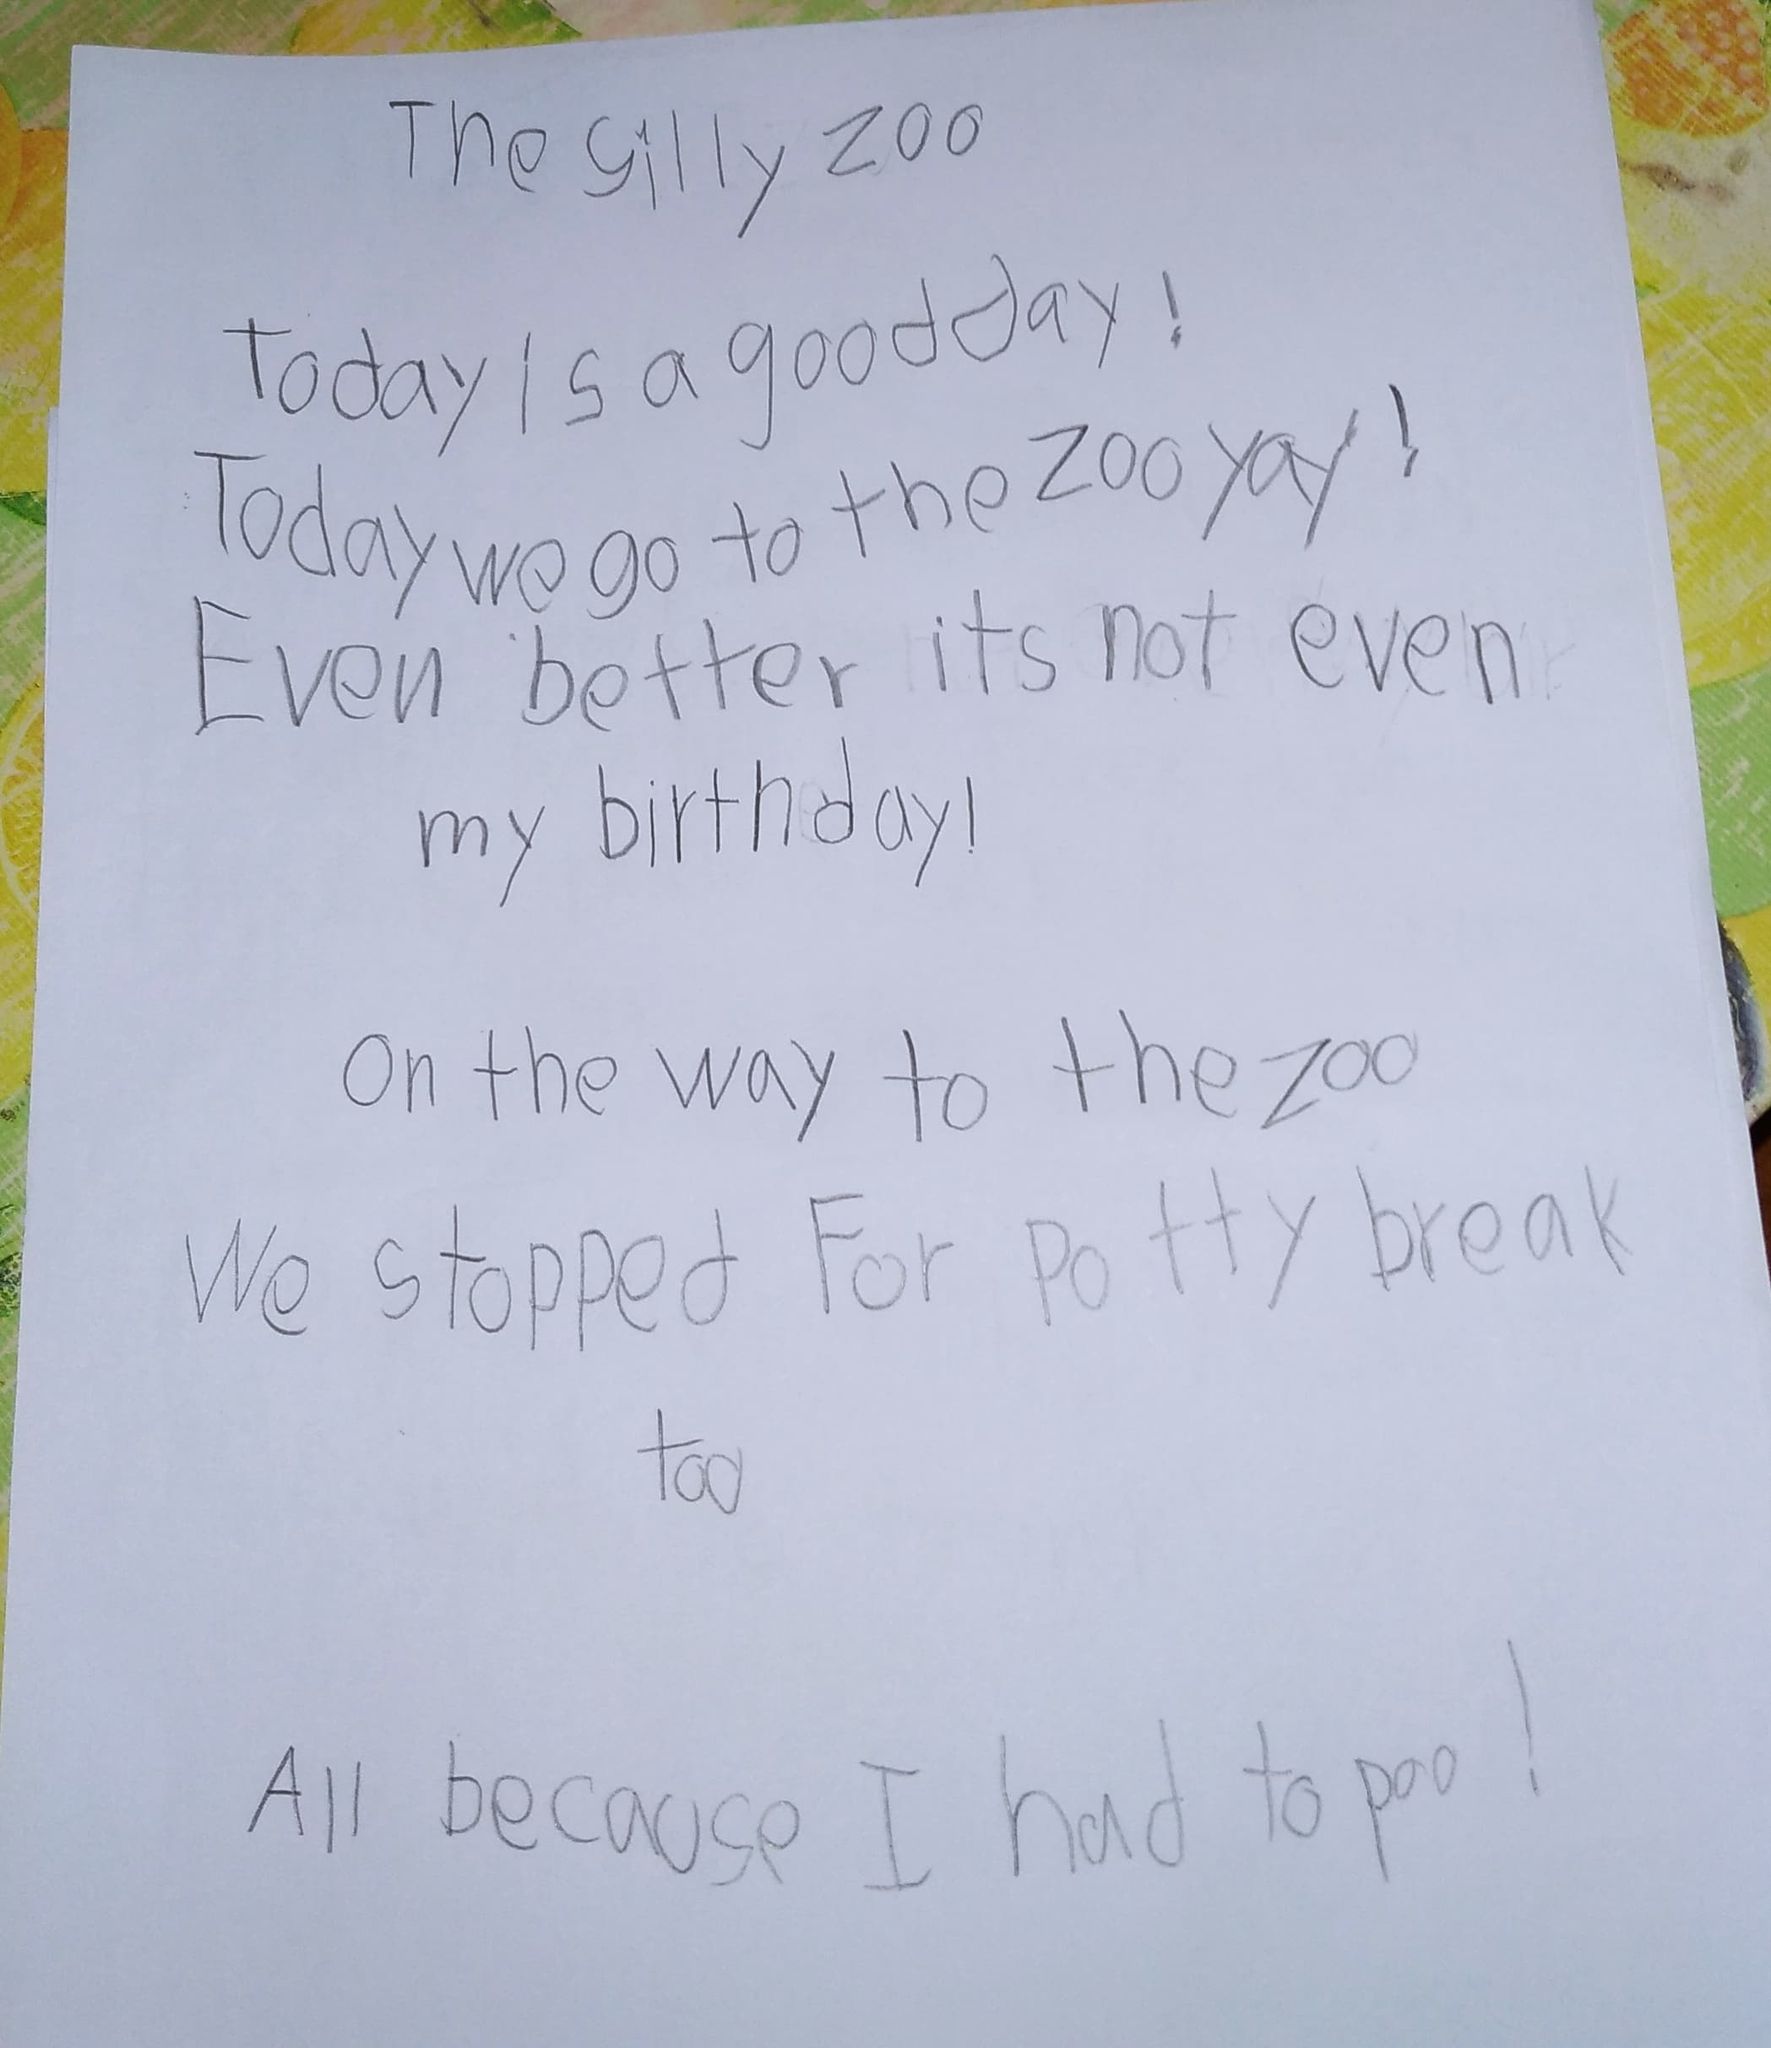 The silly zoo
Today is a good day!
Today we go to the zoo yay!
Even better its not even
my birthday!
On the way to the zoo
We stopped For potty break
too
All because I had to poo!